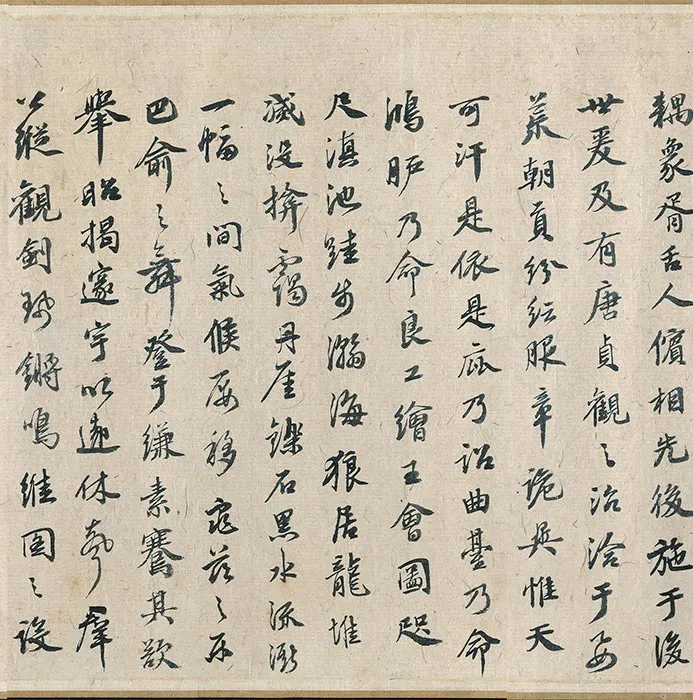 耦象胥舌人儐相先後施于後
世爰及有唐貞觀之治洽于要
荒朝貢紛紜服章詭異惟天
可汗是依是庇乃詔曲臺乃命
鴻臚乃命良工繪王會圖咫
尺滇池跬步瀚海狼居龍堆
滅没揜靄丹厓鑠石黑水流澌
一幅之間氣候屢移龜茲之樂
巴俞之舞登于縑素騫其欲
舉昭揭邃宇以遠休聲羣
公縱觀劍珮鏘鳴維圖之設